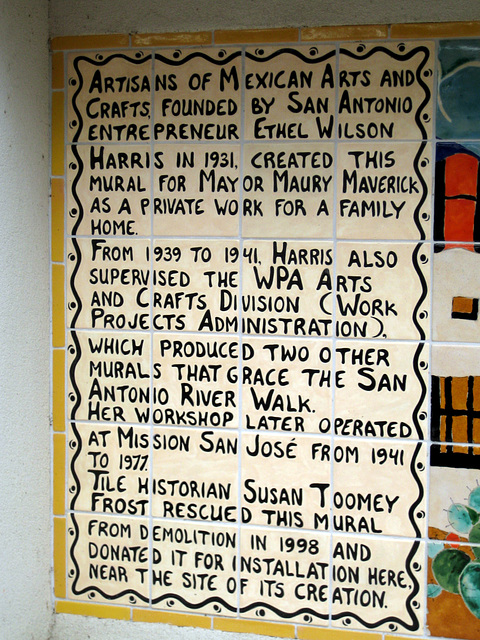 ARTISANS OF MEXICAN ARTS AND
CRAFTS, FOUNDED BY SAN ANTONIO
ENTREPRENEUR ETHEL WILSON
HARRIS IN 1931, CREATED THIS
MURAL FOR MAYOR MAURY MAVERICK
AS A PRIVATE WORK FOR A FAMILY
HOME.
FROM 1939 TO 1941, HARRIS ALSO
SUPERVISED THE WPA ARTS
AND CRAFTS DIVISION (WORK
PROJECTS ADMINISTRATION),
WHICH PRODUCED TWO OTHER
MURALS THAT GRACE THE SAN
ANTONIO RIVER WALK.
HER WORKSHOP LATER OPERATED
AT MISSION SAN JOSÉ FROM 1941
TO 1977.
TILE HISTORIAN SUSAN TOOMEY
FROST RESCUED THIS MURAL
FROM DEMOLITION IN 1998 AND
DONATED IT FOR INSTALLATION HERE,
NEAR THE SITE OF ITS CREATION.